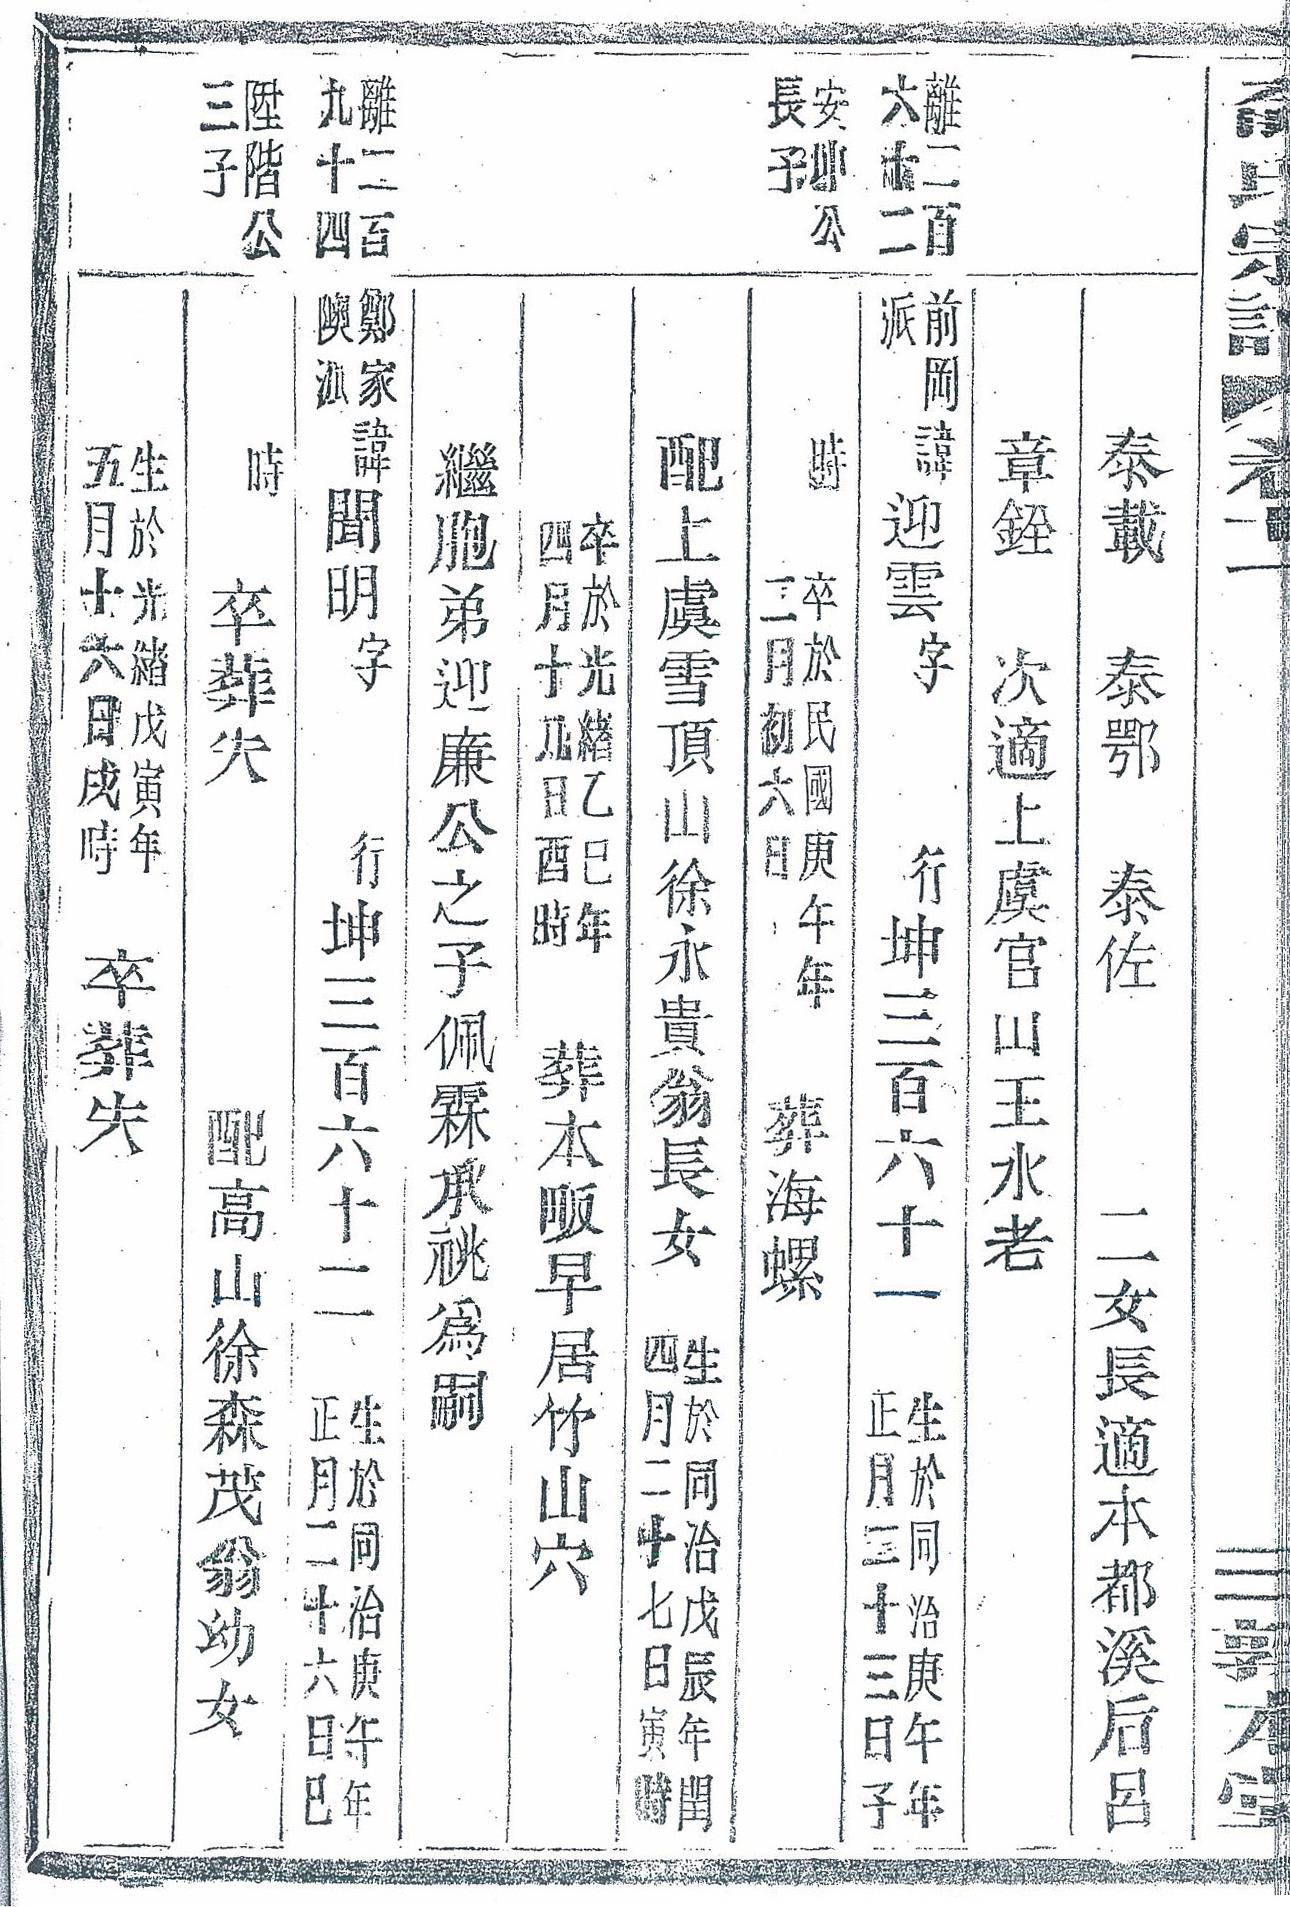 氏宗譜 卷十二 三 敦本堂
泰載 泰鄂 泰佐 二女長適本都溪后呂
章銓 次適上虞官山王水老
離二百
六十二
前岡
派
諱迎雲字 行坤三百六十一
生於同治庚午年
正月三十三日子
安坤公
長子
時
卒於民國庚午年
二月初六日
葬海螺
配上虞雪頂山徐永貴翁長女
生於同治戊辰年閏
四月二十七日寅時
卒於光緒乙巳年
四月十九日酉時
葬本畈早居竹山穴
繼胞弟迎廉公之子佩霖承祧爲嗣
離二百
九十四
鄭家
陝派
諱聞明字 行坤三百六十二
生於同治庚午年
正月二十六日巳
陞階公
三子
時 卒葬失 配高山徐森茂翁幼女
生於光緒戊寅年
五月十六日戌時
卒葬失